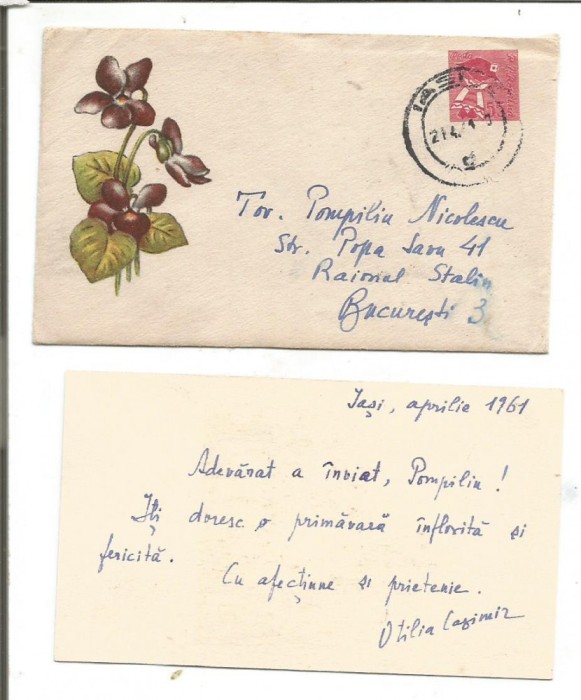 IAȘI
21.4.61
Tov. Pompiliu Nicolescu
Str. Popa Savu 41
Raionul Stalin
București 3
Iași, aprilie 1961
Adevărat a înviat, Pompiliu!
Iți doresc o primăvară înflorită și
fericită.
Cu afecțiune și prietenie.
Otilia Cazimir